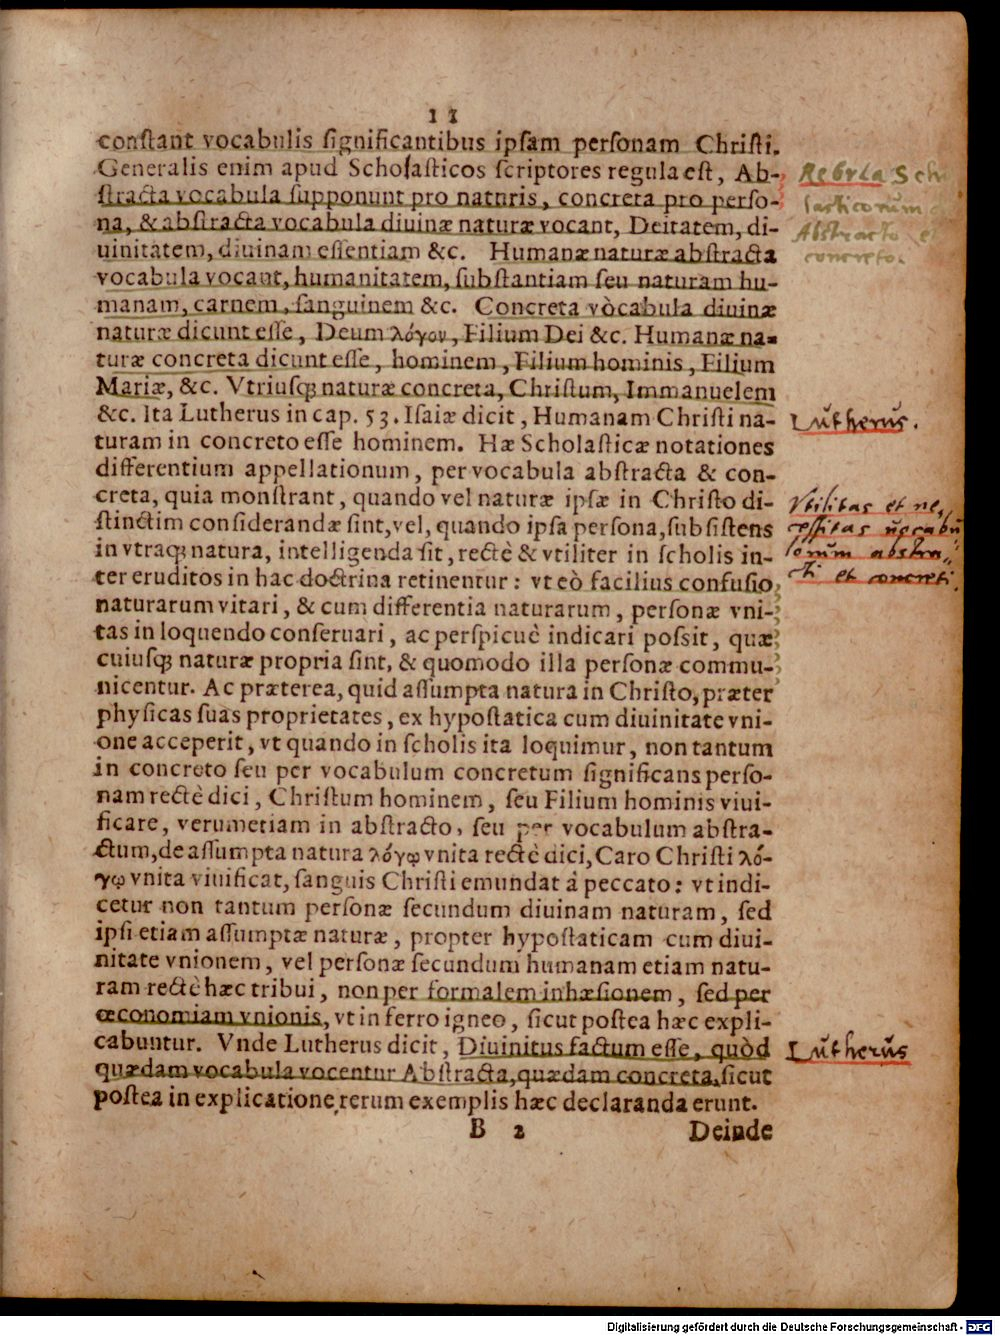 11
conſtant vocabulis ſignificantibus ipſam perſonam Chriſti.
Generalis enim apud Scholaſticos ſcriptores regula eſt, Ab-
ſtracta vocabula ſupponunt pro naturis, concreta pro perſo-
na, & abſtracta vocabula diuinæ naturæ vocant, Deitatem, di-
uinitatem, diuinam eſſentiam &c. Humanæ naturæ abſtracta
vocabula vocant, humanitatem, ſubſtantiam ſeu naturam hu-
manam, carnem, ſanguinem &c. Concreta vòcabula diuinæ
naturæ dicunt eſſe, Deum λόγον, Filium Dei &c. Humanæ na-
turæ concreta dicunt eſſe, hominem, Filium hominis, Filium
Mariæ, &c. Vtriuſq; naturæ concreta, Chriſtum, Immanuelem
&c. Ita Lutherus in cap. 53. Iſaiæ dicit, Humanam Chriſti na-
turam in concreto eſſe hominem. Hæ Scholaſticæ notationes
differentium appellationum, per vocabula abſtracta & con-
creta, quia monſtrant, quando vel naturæ ipſæ in Chriſto di-
ſtinctim conſiderandæ ſint, vel, quando ipſa perſona, ſubſiſtens
in vtraq; natura, intelligenda ſit, rectè & vtiliter in ſcholis in-
ter eruditos in hac doctrina retinentur: vt eò facilius confuſio
naturarum vitari, & cum differentia naturarum, perſonæ vni-
tas in loquendo conſeruari, ac perſpicuè indicari poſſit, quæ
cuiuſq; naturæ propria ſint, & quomodo illa perſonæ commu-
nicentur. Ac præterea, quid aſſumpta natura in Chriſto, præter
phyſicas ſuas proprietates, ex hypoſtatica cum diuinitate vni-
one acceperit, vt quando in ſcholis ita loquimur, non tantum
in concreto ſeu per vocabulum concretum ſignificans perſo-
nam rectè dici, Chriſtum hominem, ſeu Filium hominis viui-
ficare, verum etiam in abſtracto, ſeu per vocabulum abſtra-
ctum, de aſſumpta natura λόγῳ vnita rectè dici, Caro Chriſti λό-
γῳ vnita viuificat, ſanguis Chriſti emundat à peccato: vt indi-
cetur non tantum perſonæ ſecundum diuinam naturam, ſed
ipſi etiam aſſumptæ naturæ, propter hypoſtaticam cum diui-
nitate vnionem, vel perſonæ ſecundum humanam etiam natu-
ram rectè hæc tribui, non per formalem inhæſionem, ſed per
œconomiam vnionis, vt in ferro igneo, ſicut poſtea hæc expli-
cabuntur. Vnde Lutherus dicit, Diuinitus factum eſſe, quòd
quædam vocabula vocentur Abſtracta, quædam concreta, ſicut
poſtea in explicatione rerum exemplis hæc declaranda erunt.
B 2 Deinde
Regula Scho
laſticorum
Abſtracto et
concreto.
Lutherus.
Vtilitas et ne,
ceſſitas uocabu
lorum abstra,,
cti et concreti.
Lutherus
Digitalisierung gefördert durch die Deutsche Forschungsgemeinschaft - DFG